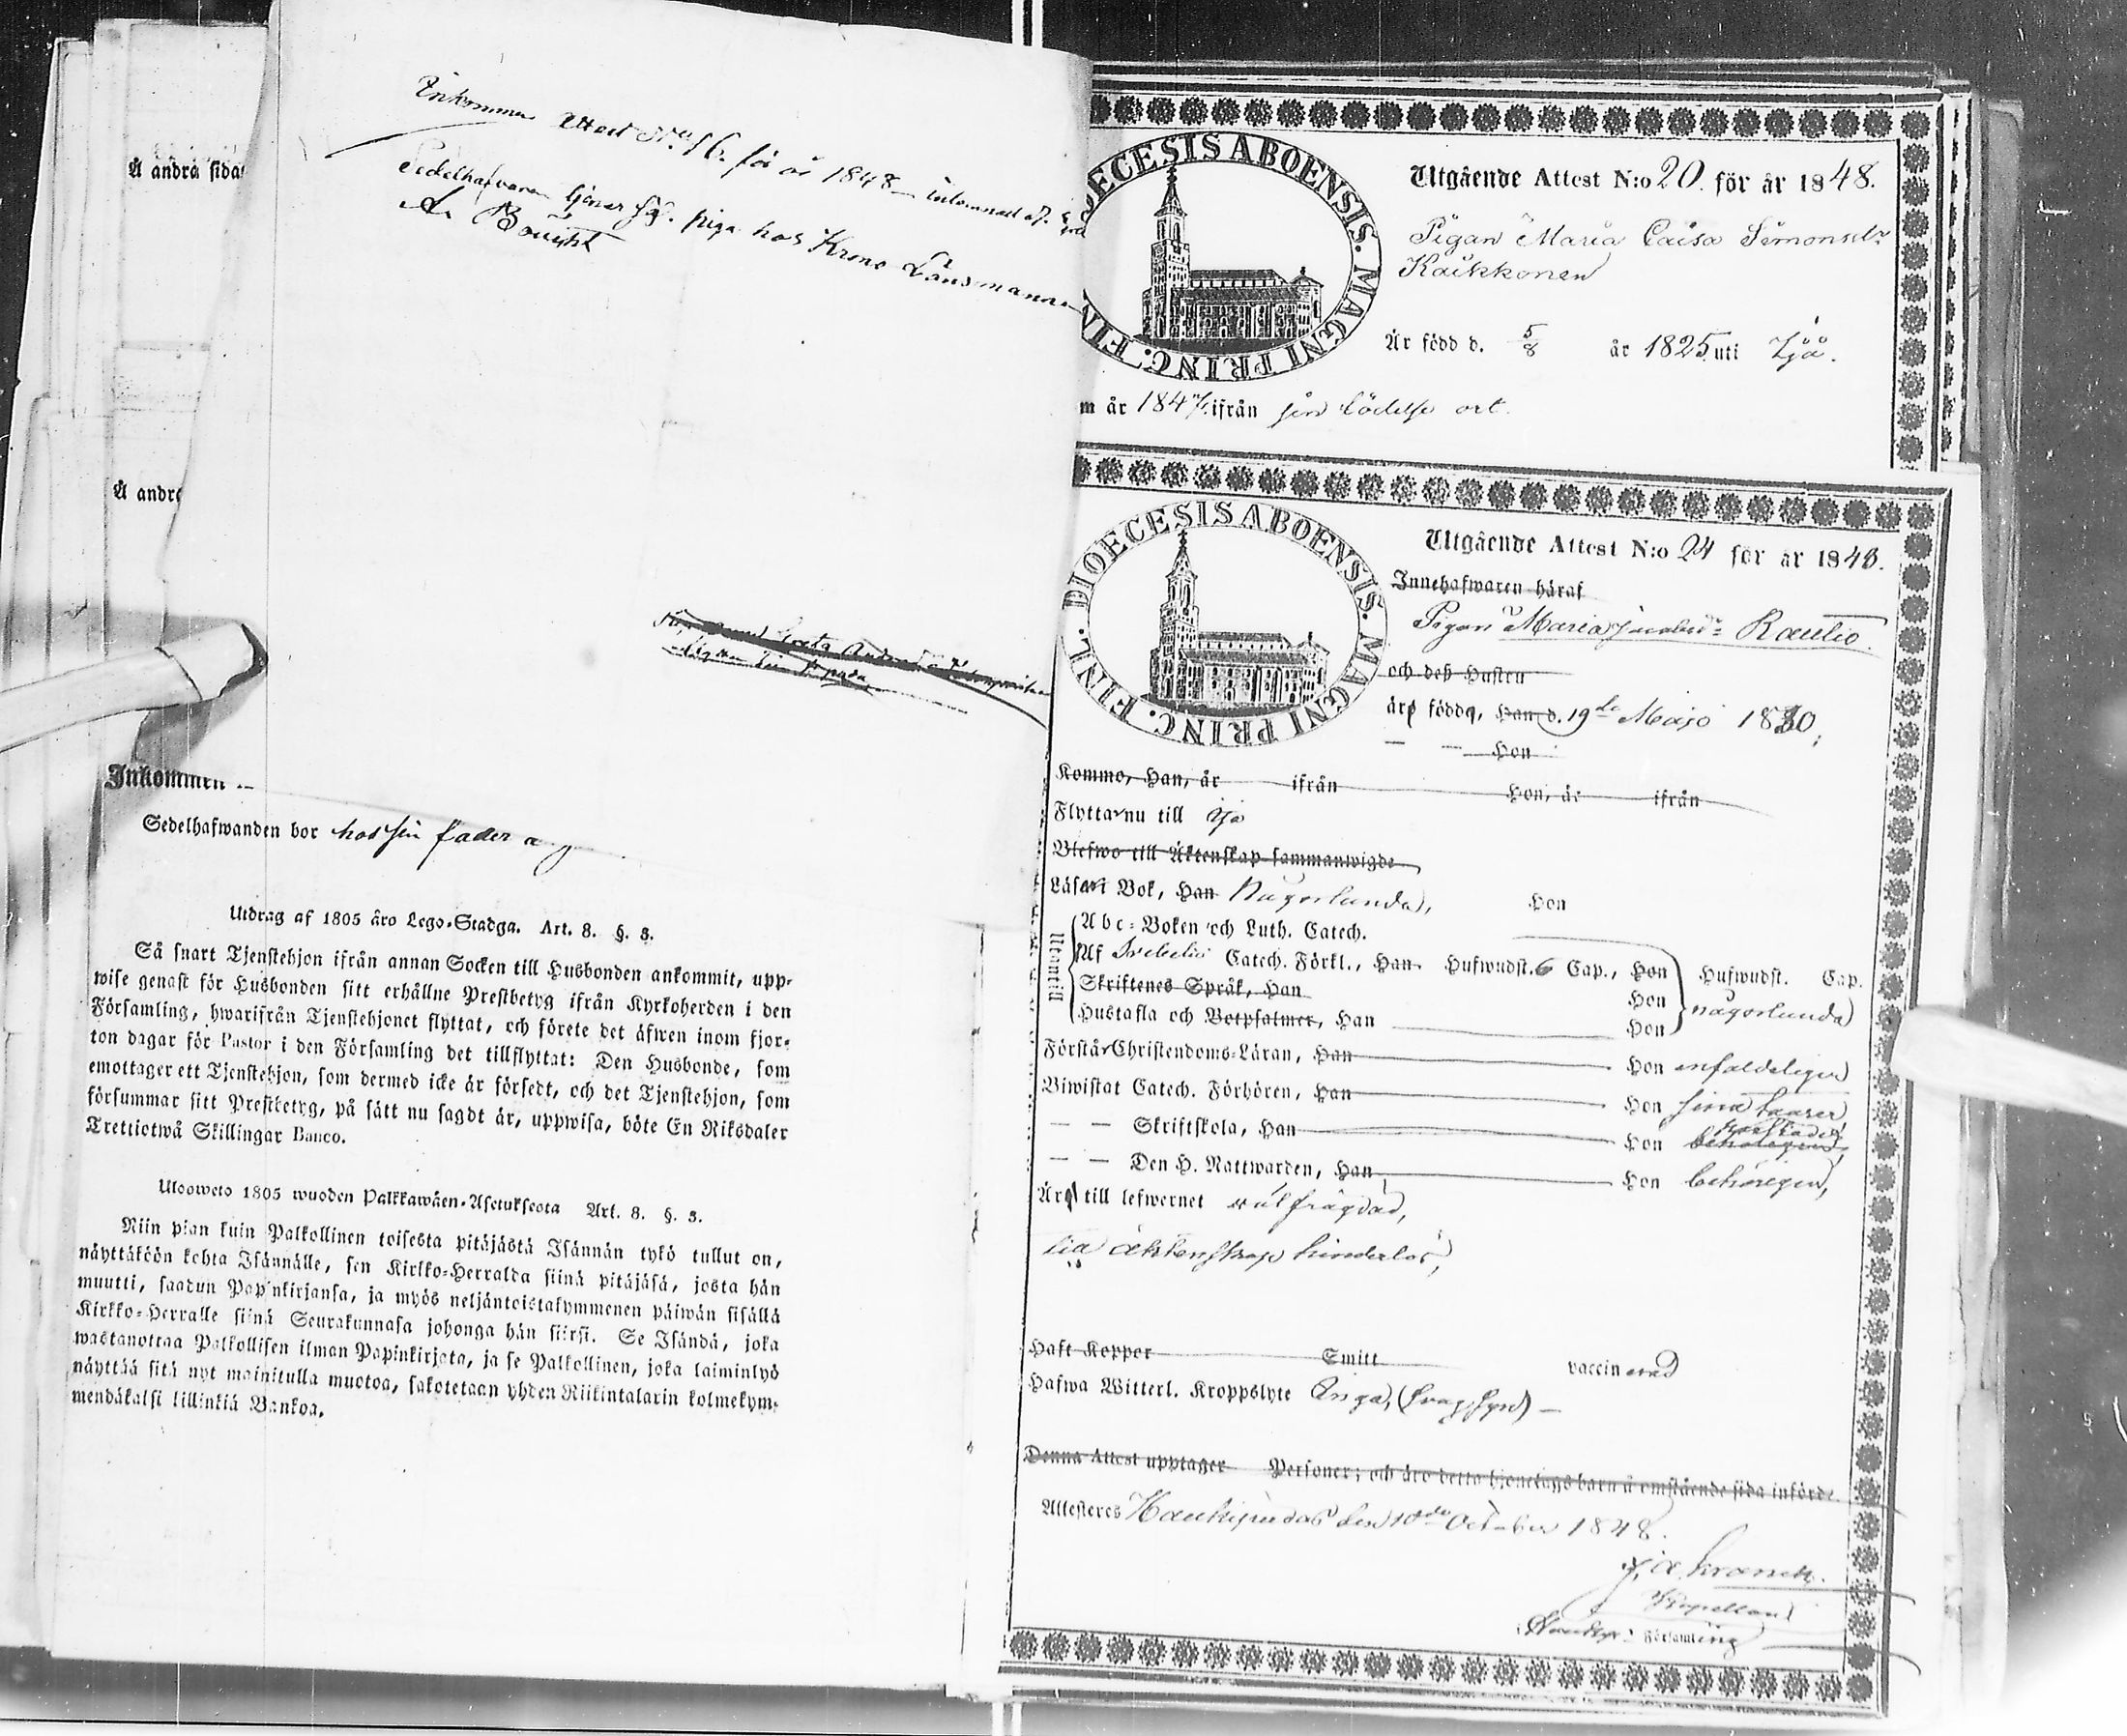 Å andra sida
Å andra
Inkommen Attest N:o 56. för år 1848
Sedelhafvaren tjenar ss. piga hos Krono Länsmannen
Inkommen
Sedelhafwanden bor hos sin fader
Utdrag af 1805 åro Lego-Stadga. Art. 8. §. 3.
Så snart Tjenstehjon ifrån annan Socken till Husbonden ankommit, upp-
wise genast för Husbonden sitt erhållne Prestbetyg ifrån Kyrkoherden i den
Församling, hwarifrån Tjenstehjonet flyttat, och förete det äfwen inom fjor-
ton dagar för Pastor i den Församling det tillflyttat: Den Husbonde, som
emottager ett Tjenstehjon, som dermed icke är försedt, och det Tjenstehjon, som
försummar sitt Prestbetyg, på sätt nu sagdt är, uppwisa, böte En Riksdaler
Trettiotwå Skillingar Banco.
Ulosweto 1805 wuoden Palkkawäen-Asetuksesta Art. 8. §. 3.
Niin pian kuin Palkollinen toisesta pitäjästä Isännän tykö tullut on,
näyttäköön kohta Isännälle, sen Kirkko-Herralda siinä pitäjäsä, josta hän
muutti, saadun Papinkirjansa, ja myös neljäntoistakymmenen päiwän sisällä
Kirkko-Herralle siinä Seurakunnasa johonga hän siirsi. Se Isändä, joka
wastanottaa Palkollisen ilman Papinkirjata, ja se Palkollinen, joka laiminlyö
näyttää sitä nyt mainitulla muotoa, sakotetaan yhden Riikintalarin kolmekym-
mendäkaksi killinkiä Bankoa.
DIOECESIS ABOENSIS. MAGNI PRINC. FIN
Utgående Attest N:o 20. för år 1848.
Pigan Maria Caisa Simonsdr
Kaikkonen
Är född d. 5/8 år 1825 uti Ijå.
m år 1847 ifrån sin födelse ort.
DIOECESIS ABOENSIS. MAGNI PRINC. FINL.
Utgående Attest N:o 24 för år 1848.
Innehafwaren häraf
Pigan Maria Jacobsdr Rautio
och deß Hustru
äro födda, Han d. 19de Majo 1830;
— — Hon
Kommo, Han, år ifrån Hon, år ifrån
Flyttar nu till Ijo
Blefwo till Äktenskap sammanwigde
Läser i Bok, Han någorlunda, Hon
Utantill
Abc-Boken och Luth. Catech.
Af Svebelii Catech. Förkl., Han Hufwudst. 6 Cap., Hon Hufwudst. Cap.
Skriftenes Språk, Han Hon någorlunda
Hustafla och Botpsalmer, Han Hon
Förstår Christendoms-Läran, Han Hon enfaldeligen
Biwistat Catech. Förhören, Han Hon sina
— — Skriftskola, Han Hon behörigen
— — Den H. Nattwarden, Han Hon behörigen,
Är till lefwernet wälfrägdad,
till äktenskap hinderlös,
Haft Koppor Smitt vaccinerad
Hafwa Witterl. Kroppslyte Inga, (svag syn) —
Denna Attest upptager Personer; och äro detto hjonelags barn å omstående sida införde
Attesteres Haukipudas den 10de October 1848.
Kapellan
Församling